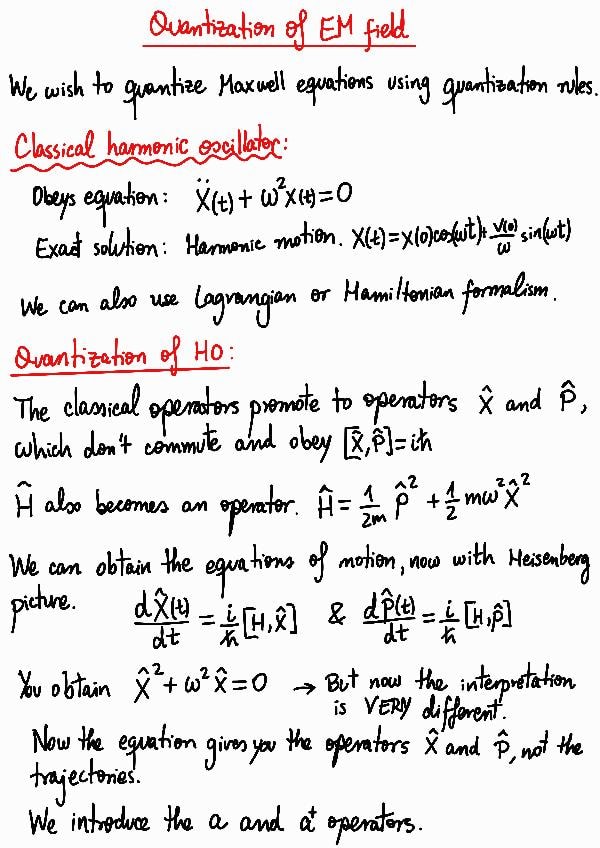 Quantization of EM field
We wish to quantize Maxwell equations using quantization rules.
Classical harmonic oscillator:
Obeys equation: Ẍ(t) + ω²X(t) = 0
Exact solution: Harmonic motion. X(t) = X(0)cos(ωt) + V(0)/ω sin(ωt)
We can also use Lagrangian or Hamiltonian formalism.
Quantization of HO:
The classical operators promote to operators X̂ and P̂,
which don't commute and obey [X̂,P̂]=iħ
Ĥ also becomes an operator. Ĥ = 1/2m P̂² + 1/2 mω²X̂²
We can obtain the equations of motion, now with Heisenberg
picture. dX̂(t)/dt = i/ħ [H,X̂] & dP̂(t)/dt = i/ħ [H,P̂]
You obtain X̂² + ω²X̂ = 0 → But now the interpretation
is VERY different.
Now the equation gives you the operators X̂ and P̂, not the
trajectories.
We introduce the a and a⁺ operators.